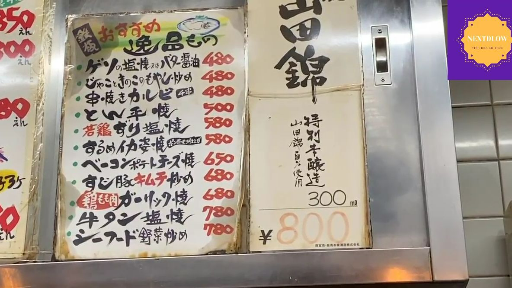 350
えん
300
えん
えん
鉄板
おすすめ
逸品もの
ゲソの塩焼 バター醤油 480
じゃこときのこのもやし炒め 480
串焼きカルビ 480
とん平焼 500
若鶏ちり塩焼 580
するめイカ姿焼 580
ベーコンポテトチーズ焼 650
すじ豚キムチ炒め 680
鶏もも肉ガーリック焼 680
牛タン塩焼 780
シーフード野菜炒め 780
山田錦
特別本醸造
山田錦 使用
300ml
¥800
NEXTBLOW